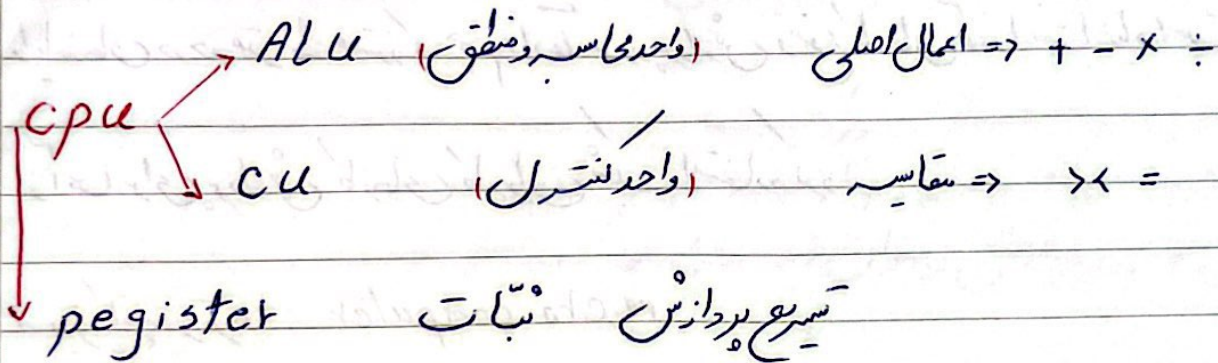 ALU (واحد محاسبه و منطق) اعمال اصلی => + - × ÷
cpu
CU (واحد کنترل) مقایسه => >< =
pegister ثبّات تسریع پردازش